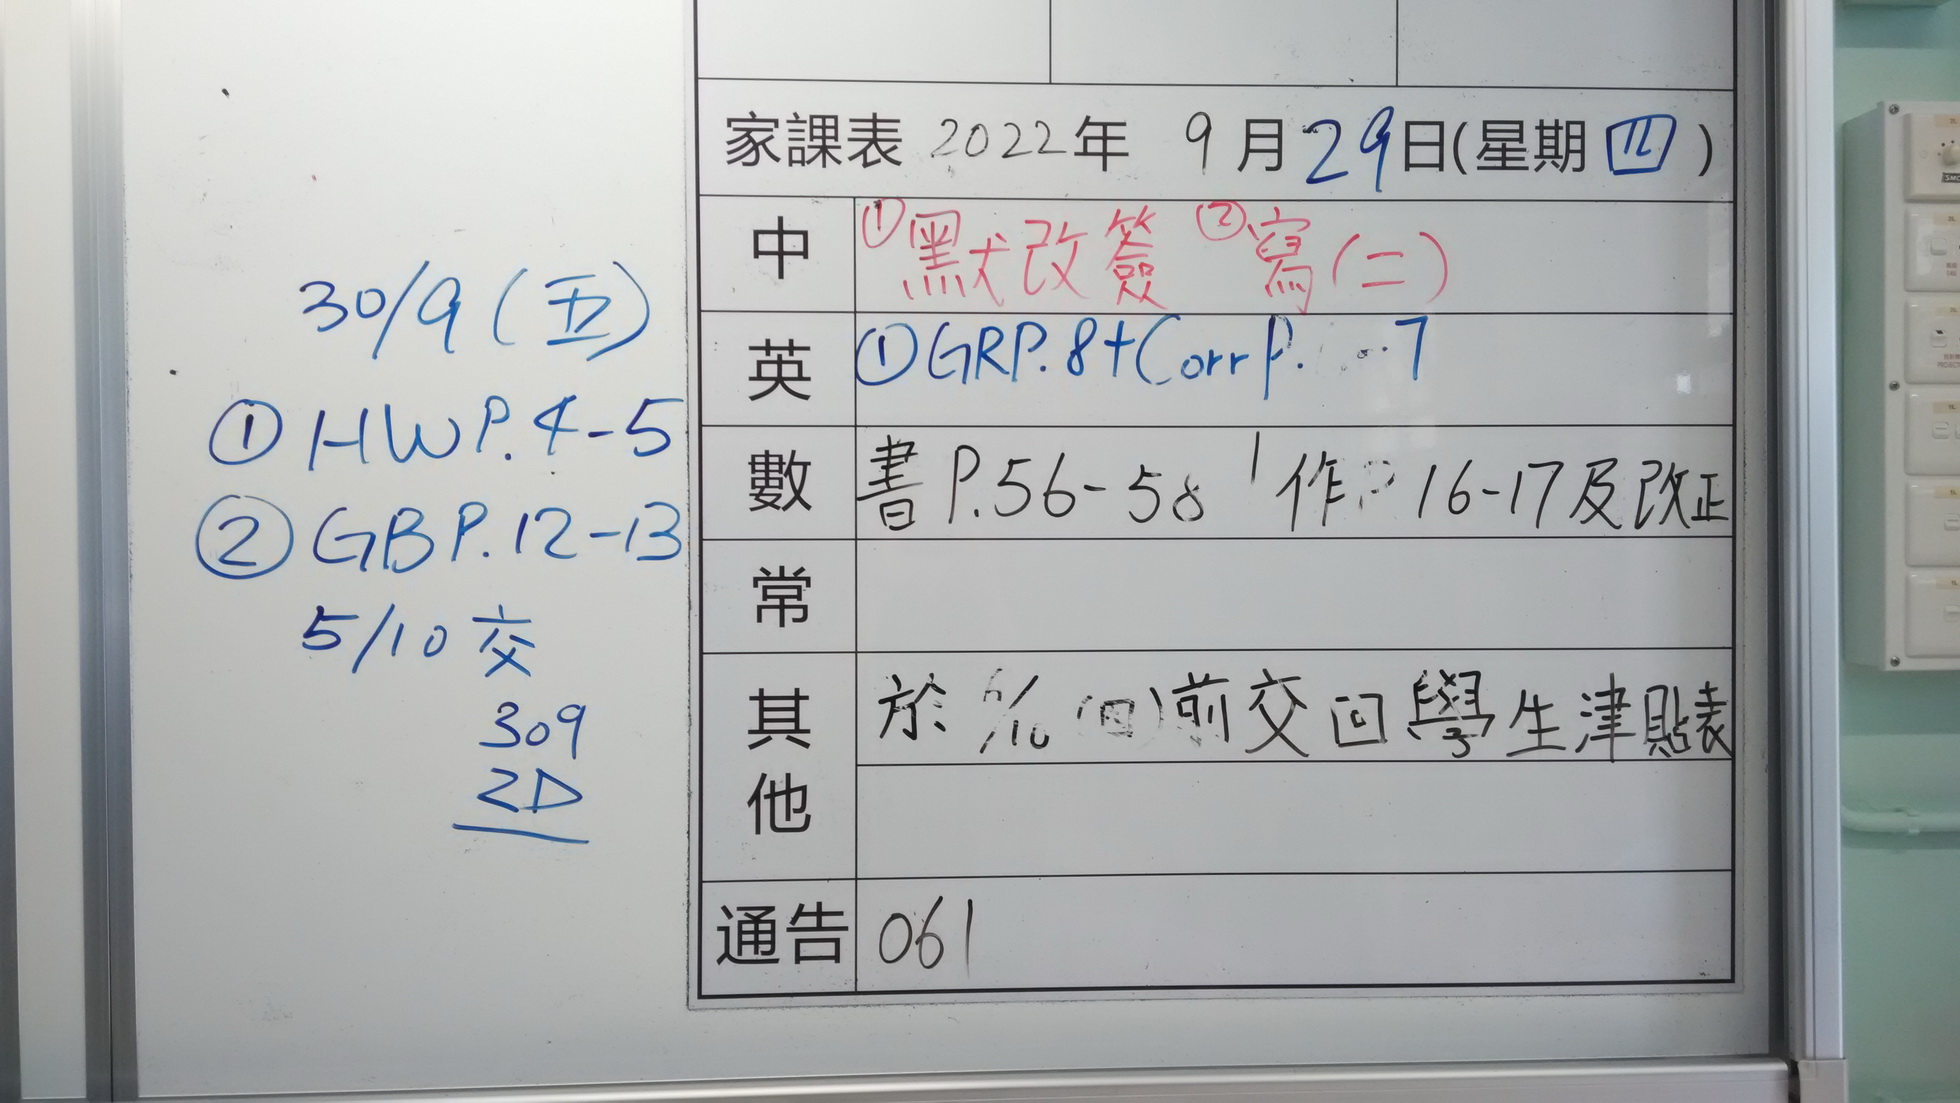 家課表 2022年 9月29日(星期四)
中 ①默改簽 ②寫(二)
英 ①GRP.8+Corr P. 7
數 書P.56-58 作P 16-17及改正
常
其他 於 /10 (四)前交回學生津貼表
通告 061
30/9 (五)
① HW P.4-5
② GB P.12-13
5/10 交
309
2D